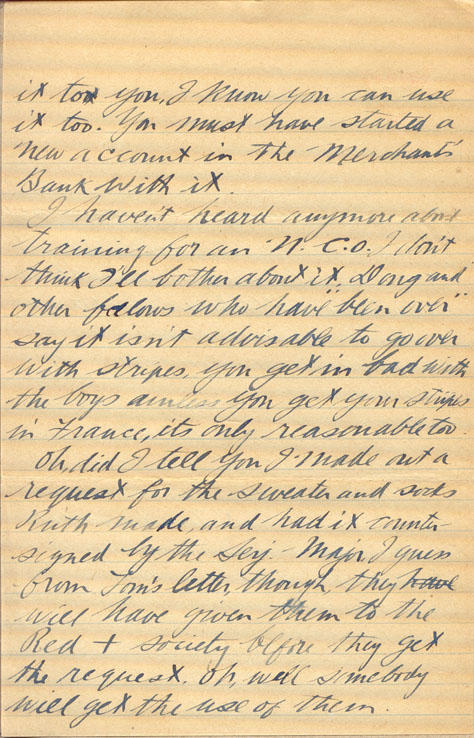 it too you, I know you can use
it too. You must have started a
new account in the Merchants'
Bank with it.
I haven't heard anymore about
training for an N.C.O. I don't
think I'll bother about it, Doug and
other fellows who have been "over"
say it isn't advisable to go over
with stripes, you get in bad with
the boys unless you get your stripes
in France, its only reasonable too.
Oh, did I tell you I made out a
request for the sweater and socks
Ruth made, and had it counter-
signed by the Serj. Major, I guess
from Tom's letter, though they have
will have given them to the
Red + society before they get
the request. Oh, well somebody
will get the use of them.